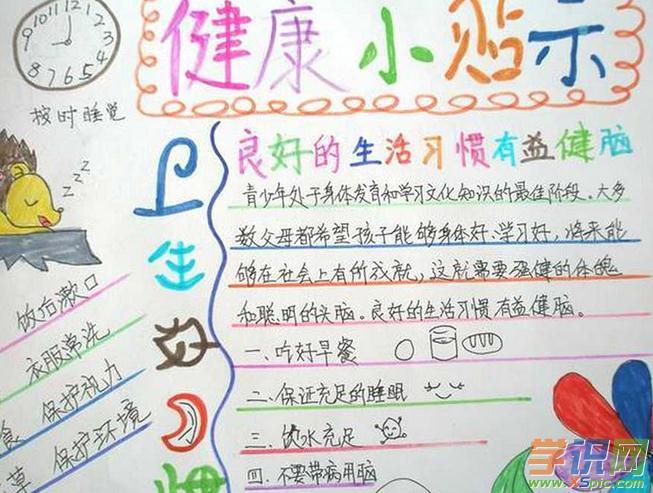 健康小贴示
10 11 12 1 2 3 4 5 6 7 8 9
按时睡觉
zzz
卫
生
好
饭后漱口
衣服常洗
食 保护视力
草 保护环境
良好的生活习惯有益健脑
青少年处于身体发育和学习文化知识的最佳阶段。大多
数父母都希望孩子能够身体好、学习好,将来能
够在社会上有所成就,这就需要强健的体魄
和聪明的头脑。良好的生活习惯有益健脑。
一、吃好早餐
二、保证充足的睡眠
三、饮水充足
四、不要带病用脑
学识网
www.XSpic.com